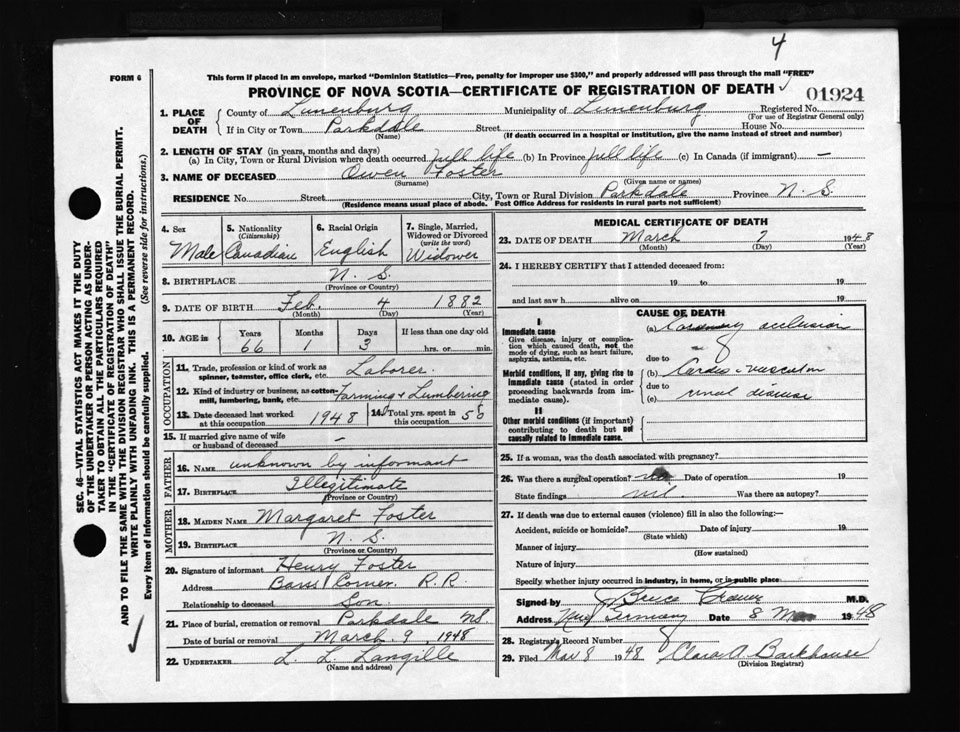 4
FORM 6
This form if placed in an envelope, marked "Dominion Statistics—Free, penalty for improper use $300," and properly addressed will pass through the mail "FREE"
PROVINCE OF NOVA SCOTIA—CERTIFICATE OF REGISTRATION OF DEATH
01924
1. PLACE OF DEATH
County of Lunenburg Municipality of Lunenburg Registered No.
(For use of Registrar General only)
If in City or Town Parkdale Street House No.
(Name) (If death occurred in a hospital or institution, give the name instead of street and number)
2. LENGTH OF STAY (in years, months and days)
(a) In City, Town or Rural Division where death occurred full life (b) In Province full life (c) In Canada (if immigrant) —
3. NAME OF DECEASED Owen Foster
(Surname) (Given name or names)
RESIDENCE No. Street City, Town or Rural Division Parkdale Province N. S.
(Residence means usual place of abode. Post Office Address for residents in rural parts not sufficient)
4. Sex Male
5. Nationality (Citizenship) Canadian
6. Racial Origin English
7. Single, Married, Widowed or Divorced (write the word) Widower
8. BIRTHPLACE N. S.
(Province or Country)
9. DATE OF BIRTH Feb. 4 1882
(Month) (Day) (Year)
10. AGE in Years Months Days If less than one day old
66 1 3 hrs. or min.
OCCUPATION
11. Trade, profession or kind of work as spinner, teamster, office clerk, etc. Laborer
12. Kind of industry or business, as cotton-mill, lumbering, bank, etc. Farming & Lumbering
13. Date deceased last worked at this occupation 1948
14. Total yrs. spent in this occupation 50
15. If married give name of wife or husband of deceased —
FATHER
16. NAME unknown by informant
17. BIRTHPLACE Illegitimate
(Province or Country)
MOTHER
18. MAIDEN NAME Margaret Foster
19. BIRTHPLACE N. S.
(Province or Country)
20. Signature of informant Henry Foster
Address Barss Corner. R. R.
Relationship to deceased Son
21. Place of burial, cremation or removal Parkdale NS.
Date of burial or removal March 9, 1948
22. UNDERTAKER L. L. Langille
(Name and address)
MEDICAL CERTIFICATE OF DEATH
23. DATE OF DEATH March 7 1948
(Month) (Day) (Year)
24. I HEREBY CERTIFY that I attended deceased from:
19 to 19
and last saw h alive on 19
CAUSE OF DEATH
I
Immediate cause
Give disease, injury or complication which caused death, not the mode of dying, such as heart failure, asphyxia, asthenia, etc.
(a) Coronary occlusion
due to
Morbid conditions, if any, giving rise to immediate cause (stated in order proceeding backwards from immediate cause).
(b) Cardio-vascular
due to
(c) renal disease
II
Other morbid conditions (if important) contributing to death but not causally related to immediate cause.
25. If a woman, was the death associated with pregnancy?
26. Was there a surgical operation? Date of operation 19
State findings nil Was there an autopsy?
27. If death was due to external causes (violence) fill in also the following:—
Accident, suicide or homicide? Date of injury 19
(State which)
Manner of injury
(How sustained)
Nature of injury
Specify whether injury occurred in industry, in home, or in public place
Signed by J. Bruce Cramer M.D.
Address New Germany Date 8 Mar 1948
28. Registrars Record Number
29. Filed Mar 8 1948 Clara A. Barkhouse
(Division Registrar)
SEC. 46—VITAL STATISTICS ACT MAKES IT THE DUTY
OF THE UNDERTAKER OR PERSON ACTING AS UNDER-
TAKER TO OBTAIN ALL THE PARTICULARS REQUIRED
IN THE "CERTIFICATE OF REGISTRATION OF DEATH"
AND TO FILE THE SAME WITH THE DIVISION REGISTRAR WHO SHALL ISSUE THE BURIAL PERMIT.
WRITE PLAINLY WITH UNFADING INK. THIS IS A PERMANENT RECORD.
Every item of information should be carefully supplied. (See reverse side for instructions.)